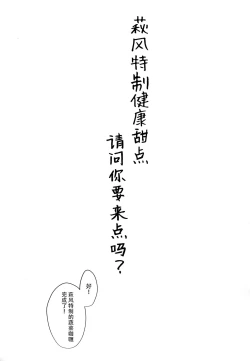 萩风特制健康甜点
请问你要来点吗？
好！
萩风特制的蔬菜咖喱
完成了！